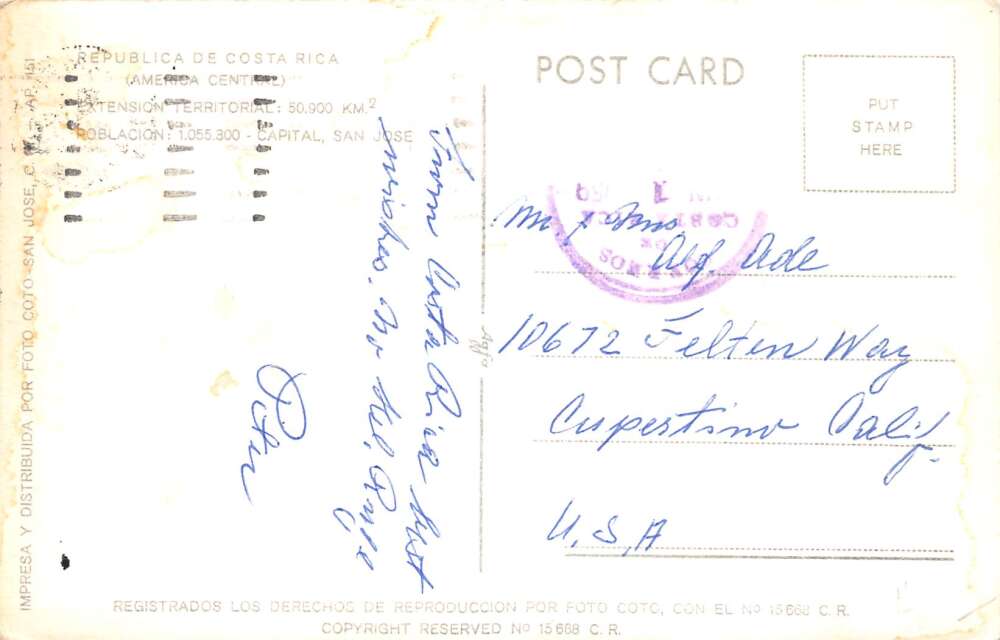 REPUBLICA DE COSTA RICA
(AMERICA CENTRAL)
EXTENSION TERRITORIAL: 50.900 KM²
POBLACION: 1.055.800 - CAPITAL, SAN JOSE
IMPRESA Y DISTRIBUIDA POR FOTO COTO - SAN JOSE, C. R. - AP. 151
From Costa Rica best
wishes.
Peter
POST CARD
PUT
STAMP
HERE
Mr & Mrs
Alf. Ade
10672 Felten Way
Cupertino Calif.
U.S.A
REGISTRADOS LOS DERECHOS DE REPRODUCCION POR FOTO COTO, CON EL Nº 15668 C. R.
COPYRIGHT RESERVED Nº 15668 C. R.